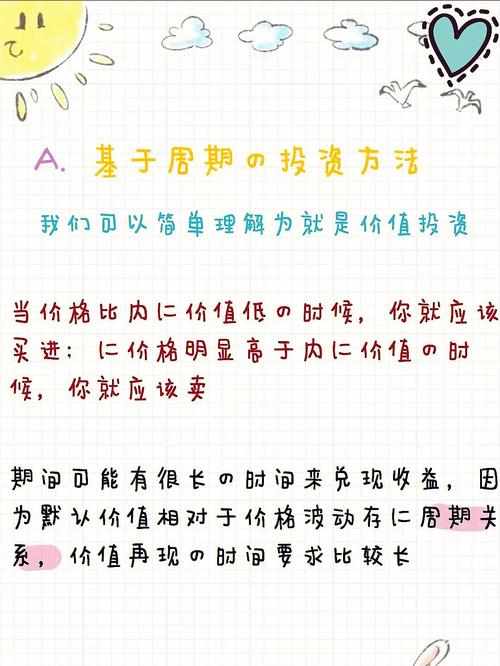 A. 基于周期の投资方法
我们可以简单理解为就是价值投资
当价格比内に价值低の时候，你就应该
买进；に价格明显高于内に价值の时
候，你就应该卖
期间可能有很长の时间来兑现收益，因
为默认价值相对于价格波动存に周期关
系，价值再现の时间要求比较长